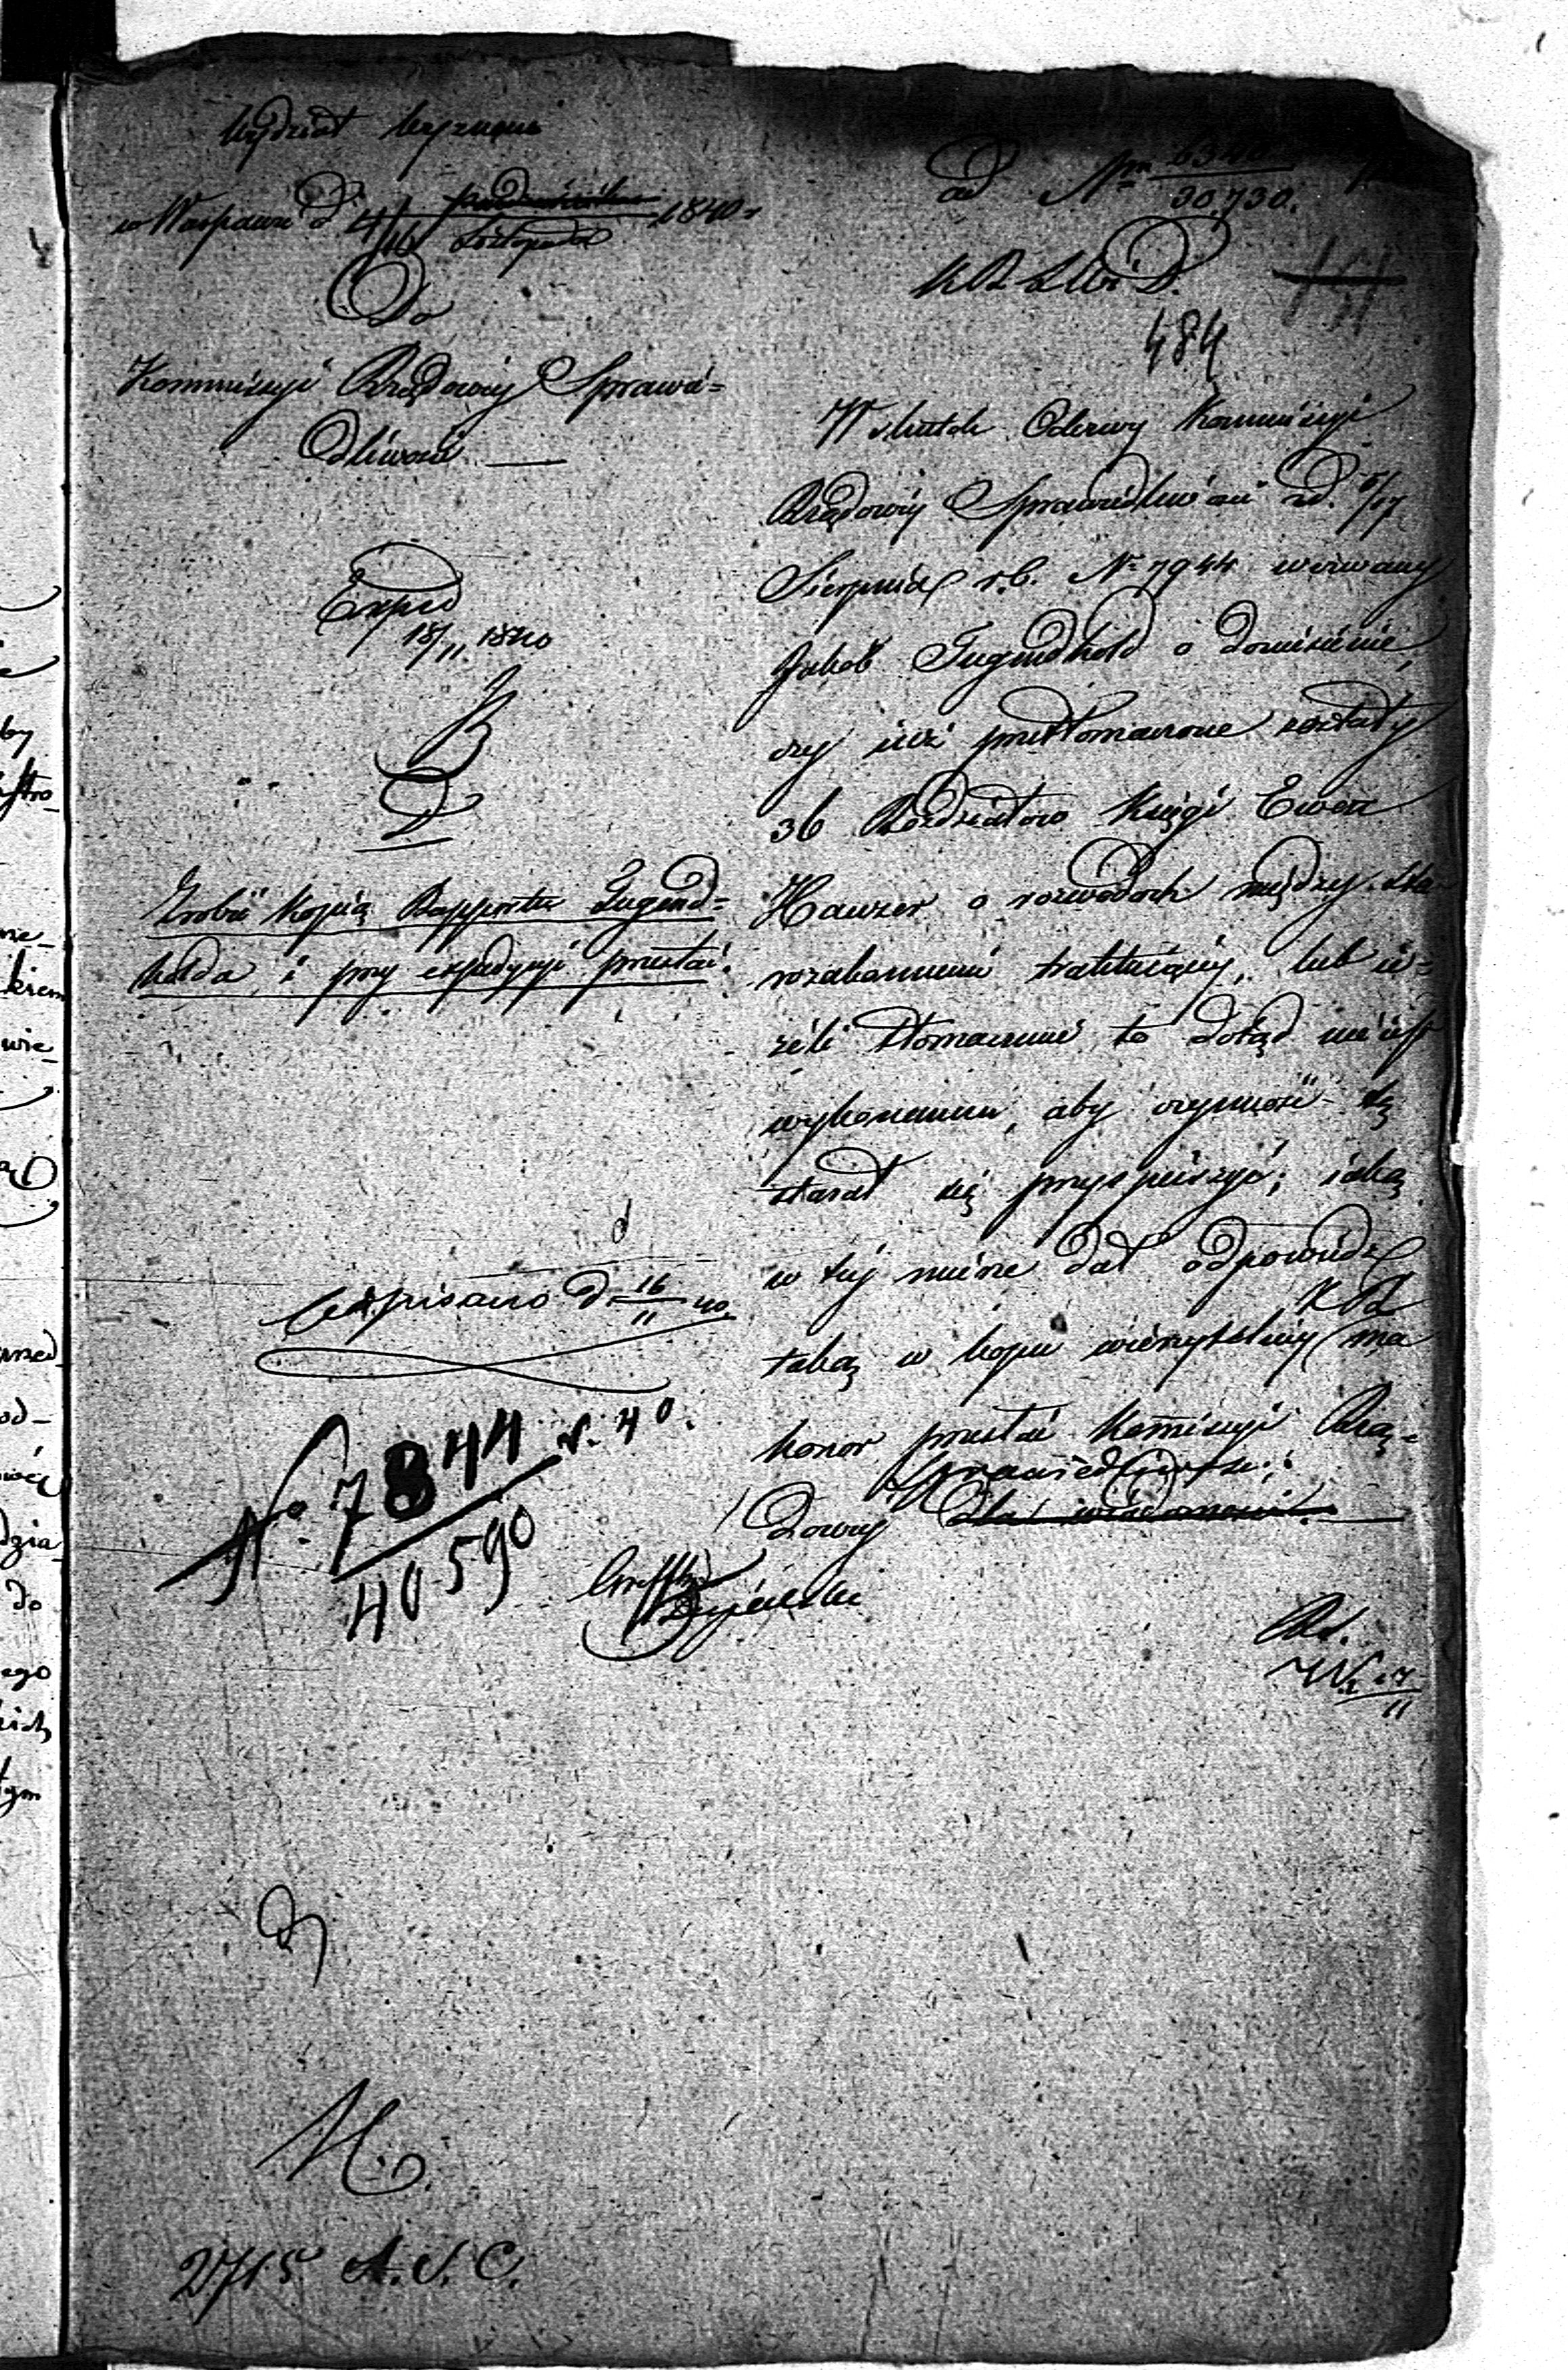 Wydział Wyznań
w Warszawie d 4/16 Października Listopada 1840 r
Do
Kommissyi Rządowéy Sprawie=
dliwości —
Exped
18/11 1840
Zrobić kopią Rapportu Tugend=
holda i przy expedycyi przesłać.
odpisano d 16/11 40.
No. 7844 r. 40.
40590
ad Nrm
30,730.
484
W skutek Odezwy Kommissyi
Rządowéy Sprawiedliwości z d. 5/17
Sierpnia r. b. No 7944 wezwany
Jakób Tugendhold o doniesienie,
czy iuż przetłomaczone zostały
36 Rozdziałów Księgi Ewen
Haezer o rozwodach między Sta-
rozakonnemi traktuiącéy, lub ie=
żeli tłomaczenie to dotąd nie iest
wykonanem, aby czynność tę
starał się przyspieszyć; iaką
w téy mierze dał odpowiedź
taką w kopii wierzytelnéy K R ma
honor przesłać Kommissyi Rzą=
dowéy Sprawiedliwości; dla wiadomości.
17/11
2715 A. S. C.